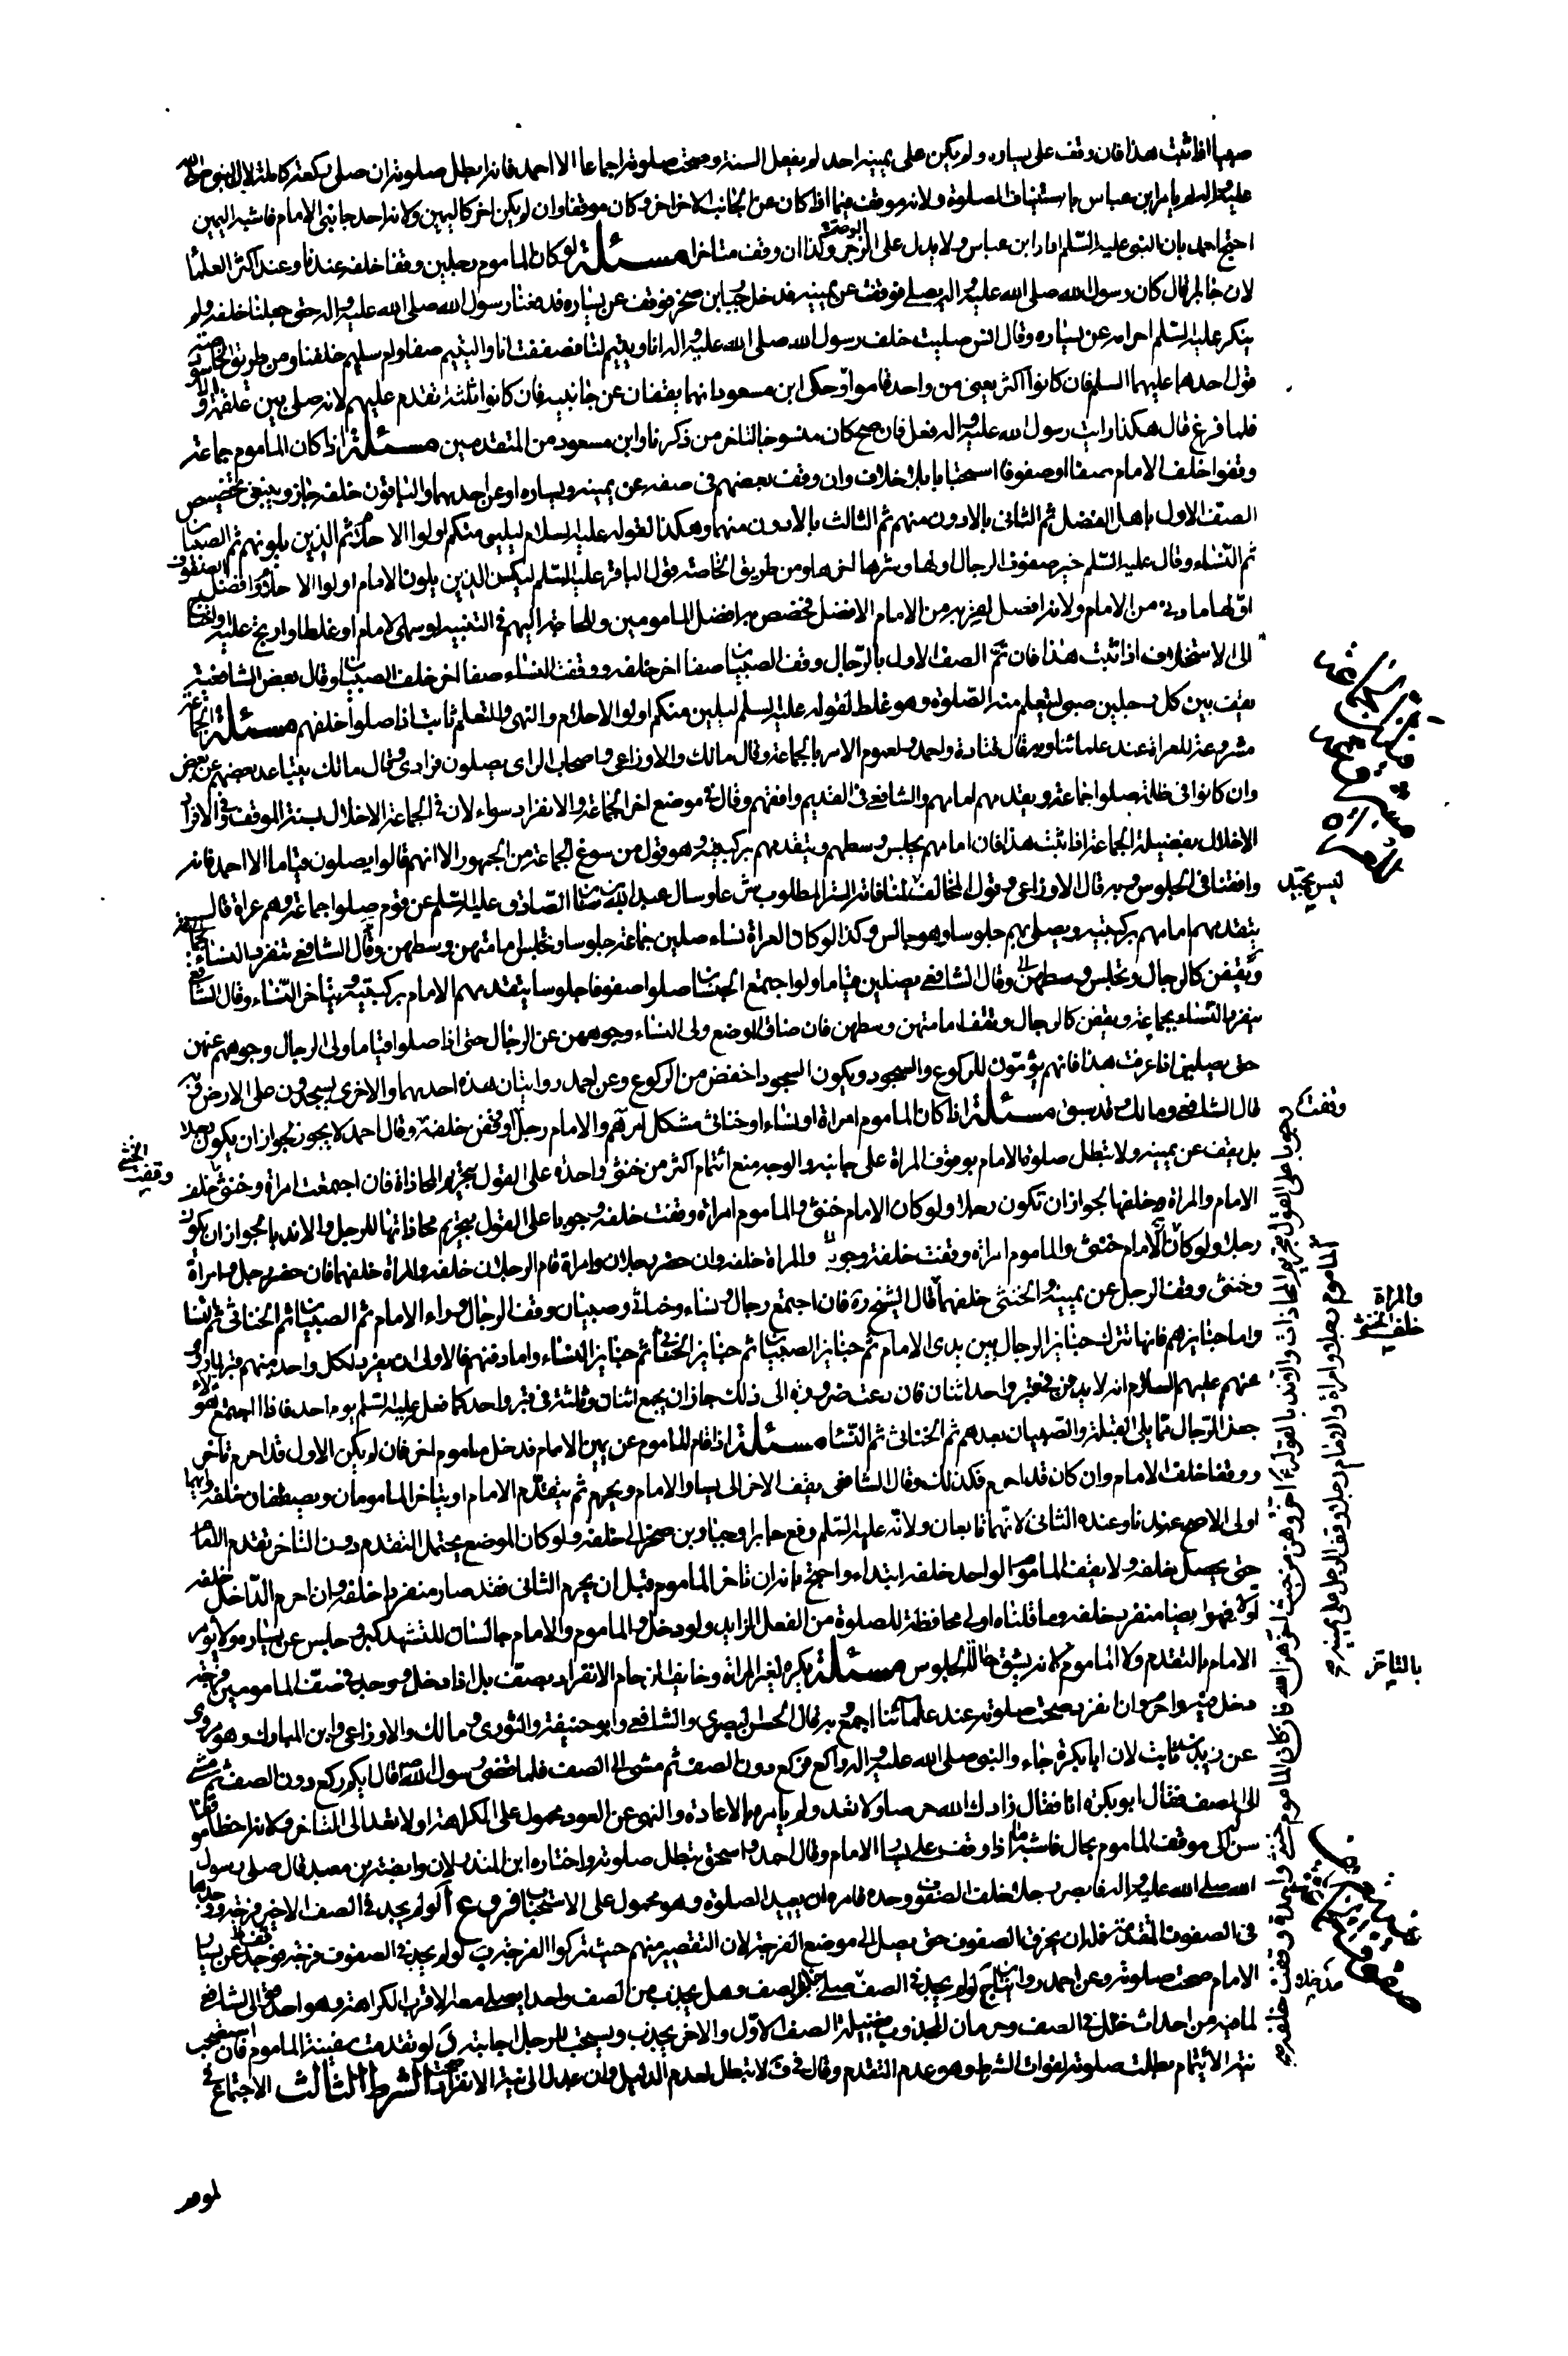 صهيبا اذا ثبت هذا فان وقف على يساره ولم يكن على يمينه احد لم يفعل السنة وصحت صلوته اجماعا الا احمد فانه ابطل صلوته ان صلى ركعة كاملة لان النبى صلى الله
عليه واله لم يامر ابن عباس باستيناف الصلوة ولانه موقف فيما اذا كان عن الجانب الاخر اخر فكان موقفا وان لم يكن اخر كاليمين ولانه احد جانبى الامام فاشبه اليمين
احتج احمد بان النبى عليه السلم ادار ابن عباس ولا يدل على الوجوب وكذا ان وقف متاخرا مسئلة لو كان الماموم رجلين وقفا خلفه عندنا وعند اكثر العلماء
لان جابرا قال كان رسول الله صلى الله عليه واله يصلى فوقفت عن يمينه فدخل جبار بن صخر فوقف عن يساره فدفعنا رسول الله صلى الله عليه واله حتى جعلنا خلفه ولم
ينكر عليه السلم احرامه عن يساره وقال انس صليت خلف رسول الله صلى الله عليه واله انا ويتيم لنا فصففت انا واليتيم صفا وام سليم خلفنا ومن طريق الخاصة
قول احدهما عليهما السلم فان كانوا اكثر يعنى من واحد قاموا وحكى ابن مسعود انهما يقفان عن جانبيه فان كانوا ثلثة تقدم عليهم لانه صلى بين علقمة و
فلما فرغ قال هكذا رايت رسول الله عليه واله فعل فان صح كان منسوخا لتاخر من ذكرنا وابن مسعود من المتقدمين مسئلة اذا كان الماموم جماعة
وقفوا خلف الامام صفا او صفوفا استحبابا بلا خلاف وان وقف بعضهم فى صفه عن يمينه ويساره او عن احديهما والباقون خلفه جاز وينبغى تخصيص
الصف الاول باهل الفضل ثم الثانى بالادون منهم ثم الثالث بالادون منهما وهكذا لقوله عليه السلام ليلينى منكم اولوا الاحلام ثم الذين يلونهم ثم الصبيان
ثم النساء وقال عليه السلم خير صفوف الرجال اولها وشرها اخرها ومن طريق الخاصة قول الباقر عليه السلم ليكن الذين يلون الامام اولوا الاحلام وافضل الصفوف
اولها ما دنى من الامام ولانه افضل لقربه من الامام الافضل فخص به افضل المامومين والحاجة اليهم فى التنبيه لو سهى الامام او غلط او ارتج عليه واحتاج
الى الاستخلاف اذا ثبت هذا فان تم الصف الاول بالرجال وقف الصبيان صفا اخر خلفه ووقفت النساء صفا اخر خلف الصبيان وقال بعض الشافعية
يقف بين كل رجلين صبى ليتعلم منه الصلوة وهو غلط لقوله عليه السلم ليلين منكم اولوا الاحلام والنهى والتعلم ثابت اذا صلوا خلفهم مسئلة الجماعة
مشروعة للعراة عند علمائنا وبه قال قتادة واحمد لعموم الامر بالجماعة وقال مالك والاوزاعى واصحاب الراى يصلون فرادى وقال مالك يتباعد بعضهم عن بعض
وان كانوا فى ظلمة صلوا جماعة ويقدمهم امامهم والشافعى فى القديم وافقهم وقال فى موضع اخر الجماعة والانفراد سواء لان فى الجماعة الاخلال بسنة الموقف وفى الافراد
الاخلال بفضيلة الجماعة اذا ثبت هذا فان امامهم يجلس وسطهم ويتقدمهم بركبتيه وهو قول من سوغ الجماعة من الجمهور الا انهم قالوا يصلون قياما الا احمد فانه
وافقنا فى الجلوس وبه قال الاوزاعى وقول المخالف لنا فاتت الستر المطلوب شرعا وسال عبد الله بن سنان الصادق عليه السلم عن قوم صلوا جماعة وهم عراة قال
يتقدمهم امامهم بركبتيه ويصلى بهم جلوسا وهو جالس وكذا لو كان العراة نساء صلين جماعة جلوسا وتجلس امامتهن وسطهن وقال الشافعى تنفرد النساء بجماعة
ويقفن كالرجال وتجلس وسطهن وقال الشافعى يصلين قياما ولو اجتمع الجنسان صلوا صفوفا جلوسا يتقدمهم الامام بركبتيه ويتاخر النساء وقال الشافعى
ينفرد النساء بجماعة ويقفن كالرجال وتقف امامتهن وسطهن فان ضاق الموضع ولى النساء وجوههن عن الرجال حتى اذا صلوا قياما ولى الرجال وجوههم عنهن
حتى يصلين اذا عرفت هذا فانهم يؤمون للركوع والسجود ويكون السجود اخفض من الركوع وعن احمد روايتان هذه احديهما والاخرى يسجدون على الارض وبه
قال الشافعى ومالك وقد سبق مسئلة اذا كان الماموم امراة او نساء او خناثى مشكل امرهم والامام رجل وقفن خلفه وقال احمد لا يجوز لجواز ان يكون رجلا
بل يقف عن يمينه ولا تبطل صلوة الامام بوقوف المراة على جانبه والوجه منع ائتمام اكثر من خنثى واحدة على القول بتحريم المحاذاة فان اجتمعت امراة وخنثى خلف
الامام والمراة وخلفها لجواز ان تكون رجلا ولو كان الامام خنثى والماموم امراة وقفت خلفه وجوبا على القول بتحريم محاذاتها للرجل والا ندبا لجواز ان يكون
رجلا ولو كان الامام خنثى والماموم امراة وقفت خلفه وجوبا والمراة خلفه وان حضر رجلان وامراة قام الرجلان خلفه والمراة خلفهما فان حضر رجل وامراة
وخنثى وقف الرجل عن يمينه والخنثى خلفهما قال الشيخ ره فان اجتمع رجال ونساء وخناثى وصبيان وقف الرجال وراء الامام ثم الصبيان ثم الخناثى ثم النساء
واما جنايزهم فانها تترك جنايز الرجال بين يدى الامام ثم جنايز الصبيان ثم جنايز الخناثى ثم جنايز النساء واما دفنهم فالاولى ان يفرد لكل واحد منهم قبر لما روى
عنهم عليهم السلام انه لا يدفن فى قبر واحد اثنان فان دعت ضرورة الى ذلك جاز ان يجمع اثنان وثلثة فى قبر واحد كما فعل عليه السلم يوم احد فاذا اجتمع هؤلاء
جعل الرجال مما يلى القبلة والصبيان بعدهم ثم الخناثى ثم النساء مسئلة اذا قام الماموم عن يمين الامام فدخل ماموم اخر فان لم يكن الاول قد احرم تاخر
ووقفا خلف الامام وان كان قد احرم فكذلك وقال الشافعى يقف الاخر الى يسار الامام ويحرم ثم يتقدم الامام او يتاخر المامومان ويصطفان خلفه وايهما
اولى الاصح عندنا وعنده الثانى لانهما تابعان ولانه عليه السلم دفع جابرا وجبار بن صخر الى خلفه ولو كان الموضع يحتمل التقدم دون التاخر تقدم الامام
حتى يحصل خلفه ولا يقف الماموم الواحد خلفه ابتداء واحتج بانه ان تاخر الماموم قبل ان يحرم الثانى فقد صار منفردا خلفه وان احرم الداخل خلفه
اولا فهو ايضا منفرد خلفه وما قلناه اولى محافظة للصلوة من الفعل الزايد ولو دخل والماموم والامام جالسان للتشهد كبر وجلس عن يساره ولا يؤمر
الامام بالتقدم ولا الماموم لانه يشق حالة الجلوس مسئلة يكره لغير المراة وخايف الزحام الانفراد بصف بل اذا دخل ووجد فى صف المامومين فرجة
دخل فيه واحرم وان انفرد صحت صلوته عند علمائنا اجمع وبه قال الحسن البصرى والشافعى وابو حنيفة والثورى ومالك والاوزاعى وابن المبارك وهو مروى
عن زيد بن ثابت لان ابا بكرة جاء والنبى صلى الله عليه واله راكع فركع دون الصف ثم مشى الى الصف فلما قضى رسول الله قال ايكم ركع دون الصف ثم مشى
الى الصف فقال ابو بكرة انا فقال زادك الله حرصا ولا تعد ولم يامره بالاعادة والنهى عن العود محمول على الكراهة او لا تعد الى التاخر ولانه اخطا موقفا
سن الى موقف الماموم بحال فاشبه ما اذا وقف على يسار الامام وقال احمد واسحق تبطل صلوته واختاره ابن المنذر لان وابصة بن معبد قال صلى رسول
الله صلى الله عليه واله فابصر رجلا خلف الصفوف وحده فامره ان يعيد الصلوة وهو محمول على الاستحباب فروع ا لو لم يجد فى الصف الاخير فرجة ووجدها
فى الصفوف المتقدمة فله ان يخرق الصفوف حتى يصل الى موضع الفرجة لان التقصير منهم حيث تركوا الفرجة ب لو لم يجد فى الصفوف فرجة فوقف وحده عن يسار
الامام صحت صلوته وعن احمد روايتان ج لو لم يجد فى الصف صلى خلف الصف وهل يجذب من الصف واحدا يصلى معه الاقرب الكراهة وهو احد قولى الشافعى
لما فيه من احداث خلل فى الصف وحرمان المجذوب فضيلة الصف الاول والاخر يجذب ويستحب للرجل اجابته د لو تقدمت سفينة الماموم فان استصحب
نية الائتمام بطلت صلوته لفوات الشرط وهو عدم التقدم وقال فى ف لا تبطل لعدم الدليل وان عدل الى نية الانفراد صحت الشرط الثالث الاجتماع فى
ليس بجيد
وقفت
الخنثى
وقفت
والمراة
خلف الخنثى
بالتاخر
الماموم رجلا وامراة والامام رجلا وقف الرجل على يمينه صح
الموقف